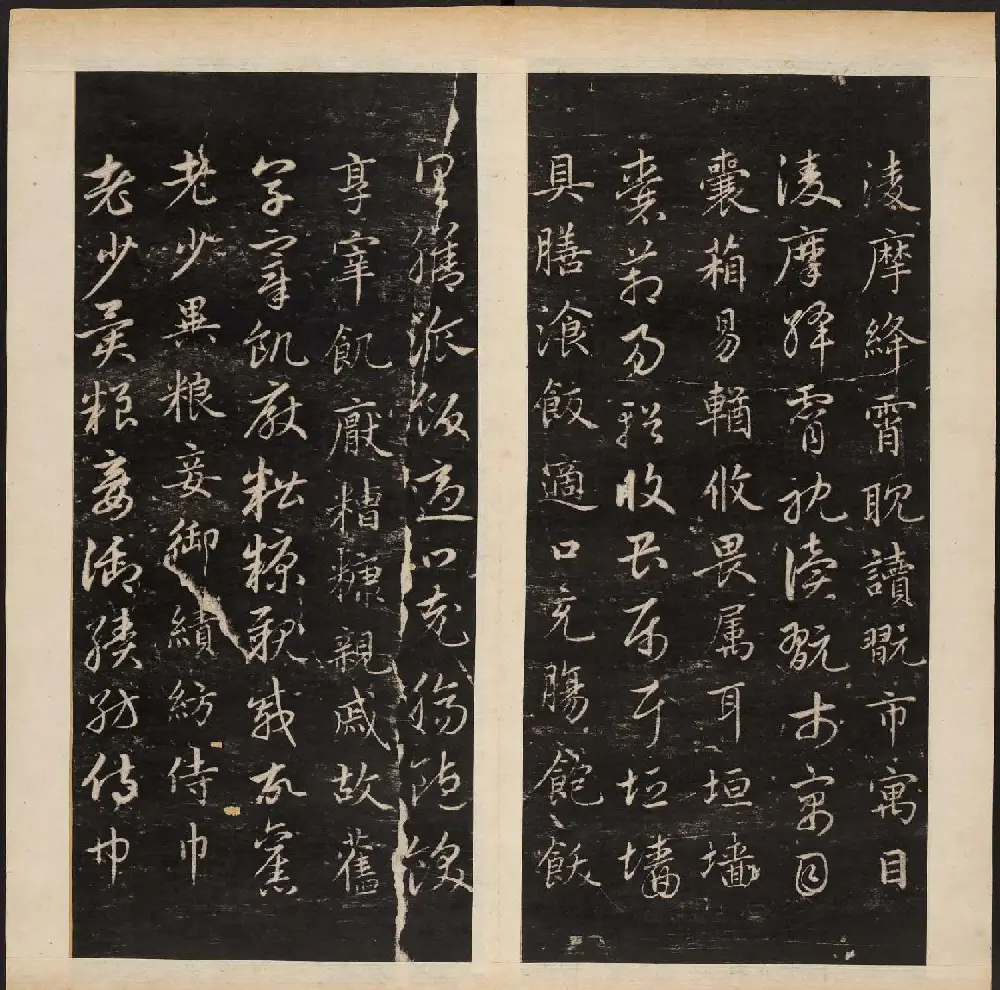 淩摩絳霄耽讀翫市寓目
淩摩絳霄耽讀翫市寓目
囊箱易輶攸畏属耳垣墻
囊箱易輶攸畏属耳垣墻
具膳湌飯適口充腸飽飫
具膳湌飯適口充腸飽飫
享宰飢厭糟糠親戚故舊
享宰飢厭糟糠親戚故舊
老少異粮妾御績紡侍巾
老少異粮妾御績紡侍巾